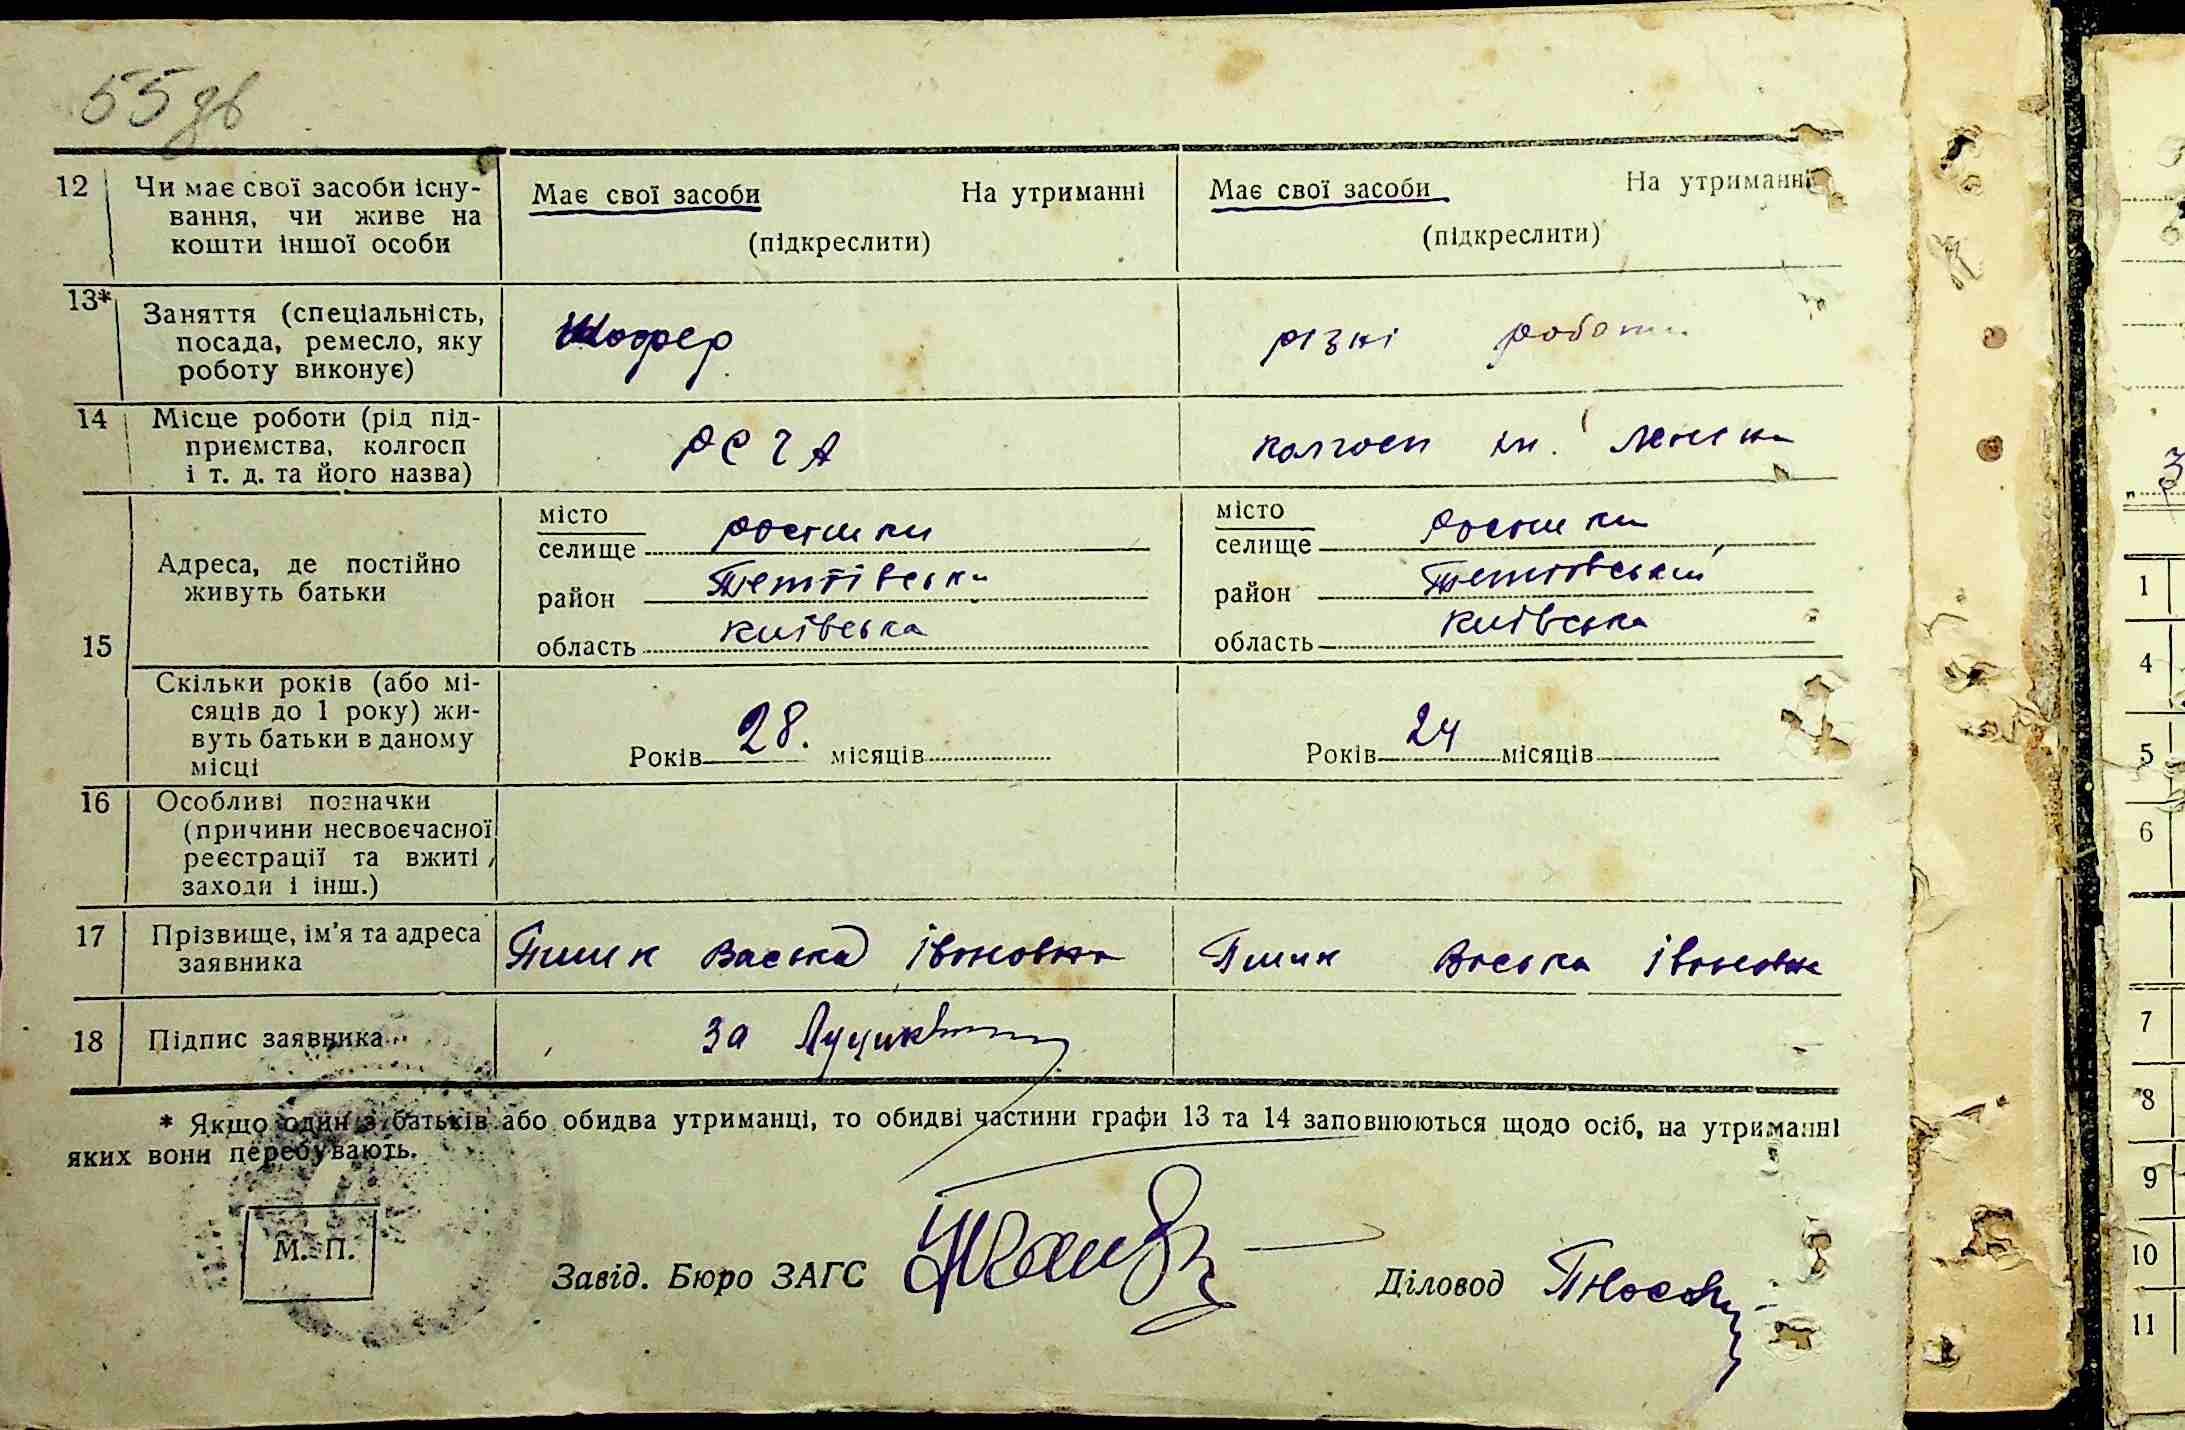 55 зв
12 Чи має свої засоби існу-
вання, чи живе на
кошти іншої особи
Має свої засоби На утриманні
(підкреслити)
Має свої засоби На утриманні
(підкреслити)
13* Заняття (спеціальність,
посада, ремесло, яку
роботу виконує)
Шофер
різні роботи
14 Місце роботи (рід під-
приємства, колгосп
і т. д. та його назва)
РСЧА
колгосп ім. Леніна
15
Адреса, де постійно
живуть батьки
місто
селище Ростики
район Тетіївськи
область Київська
місто
селище Ростики
район Тетіївський
область Київська
Скільки років (або мі-
сяців до 1 року) жи-
вуть батьки в даному
місці
Років 28. місяців
Років 24 місяців
16 Особливі позначки
(причини несвоєчасної
реєстрації та вжиті
заходи і інш.)
17 Прізвище, ім'я та адреса
заявника
Пшик Васька Івановна
Пшик Васька Івановна
18 Підпис заявника
За
* Якщо один з батьків або обидва утриманці, то обидві частини графи 13 та 14 заповнюються щодо осіб, на утриманні
яких вони перебувають.
М. П.
Завід. Бюро ЗАГС
Діловод
1
4
5
6
7
8
9
10
11